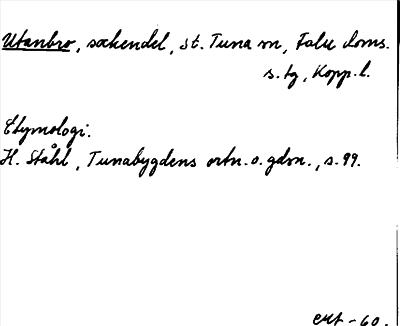 Utanbro, sockendel, St. Tuna sn, Falu doms.
s. tg, Kopp. l.
Etymologi.
H. Ståhl, Tunabygdens ortn. o. gdsn., s. 99.
-60.